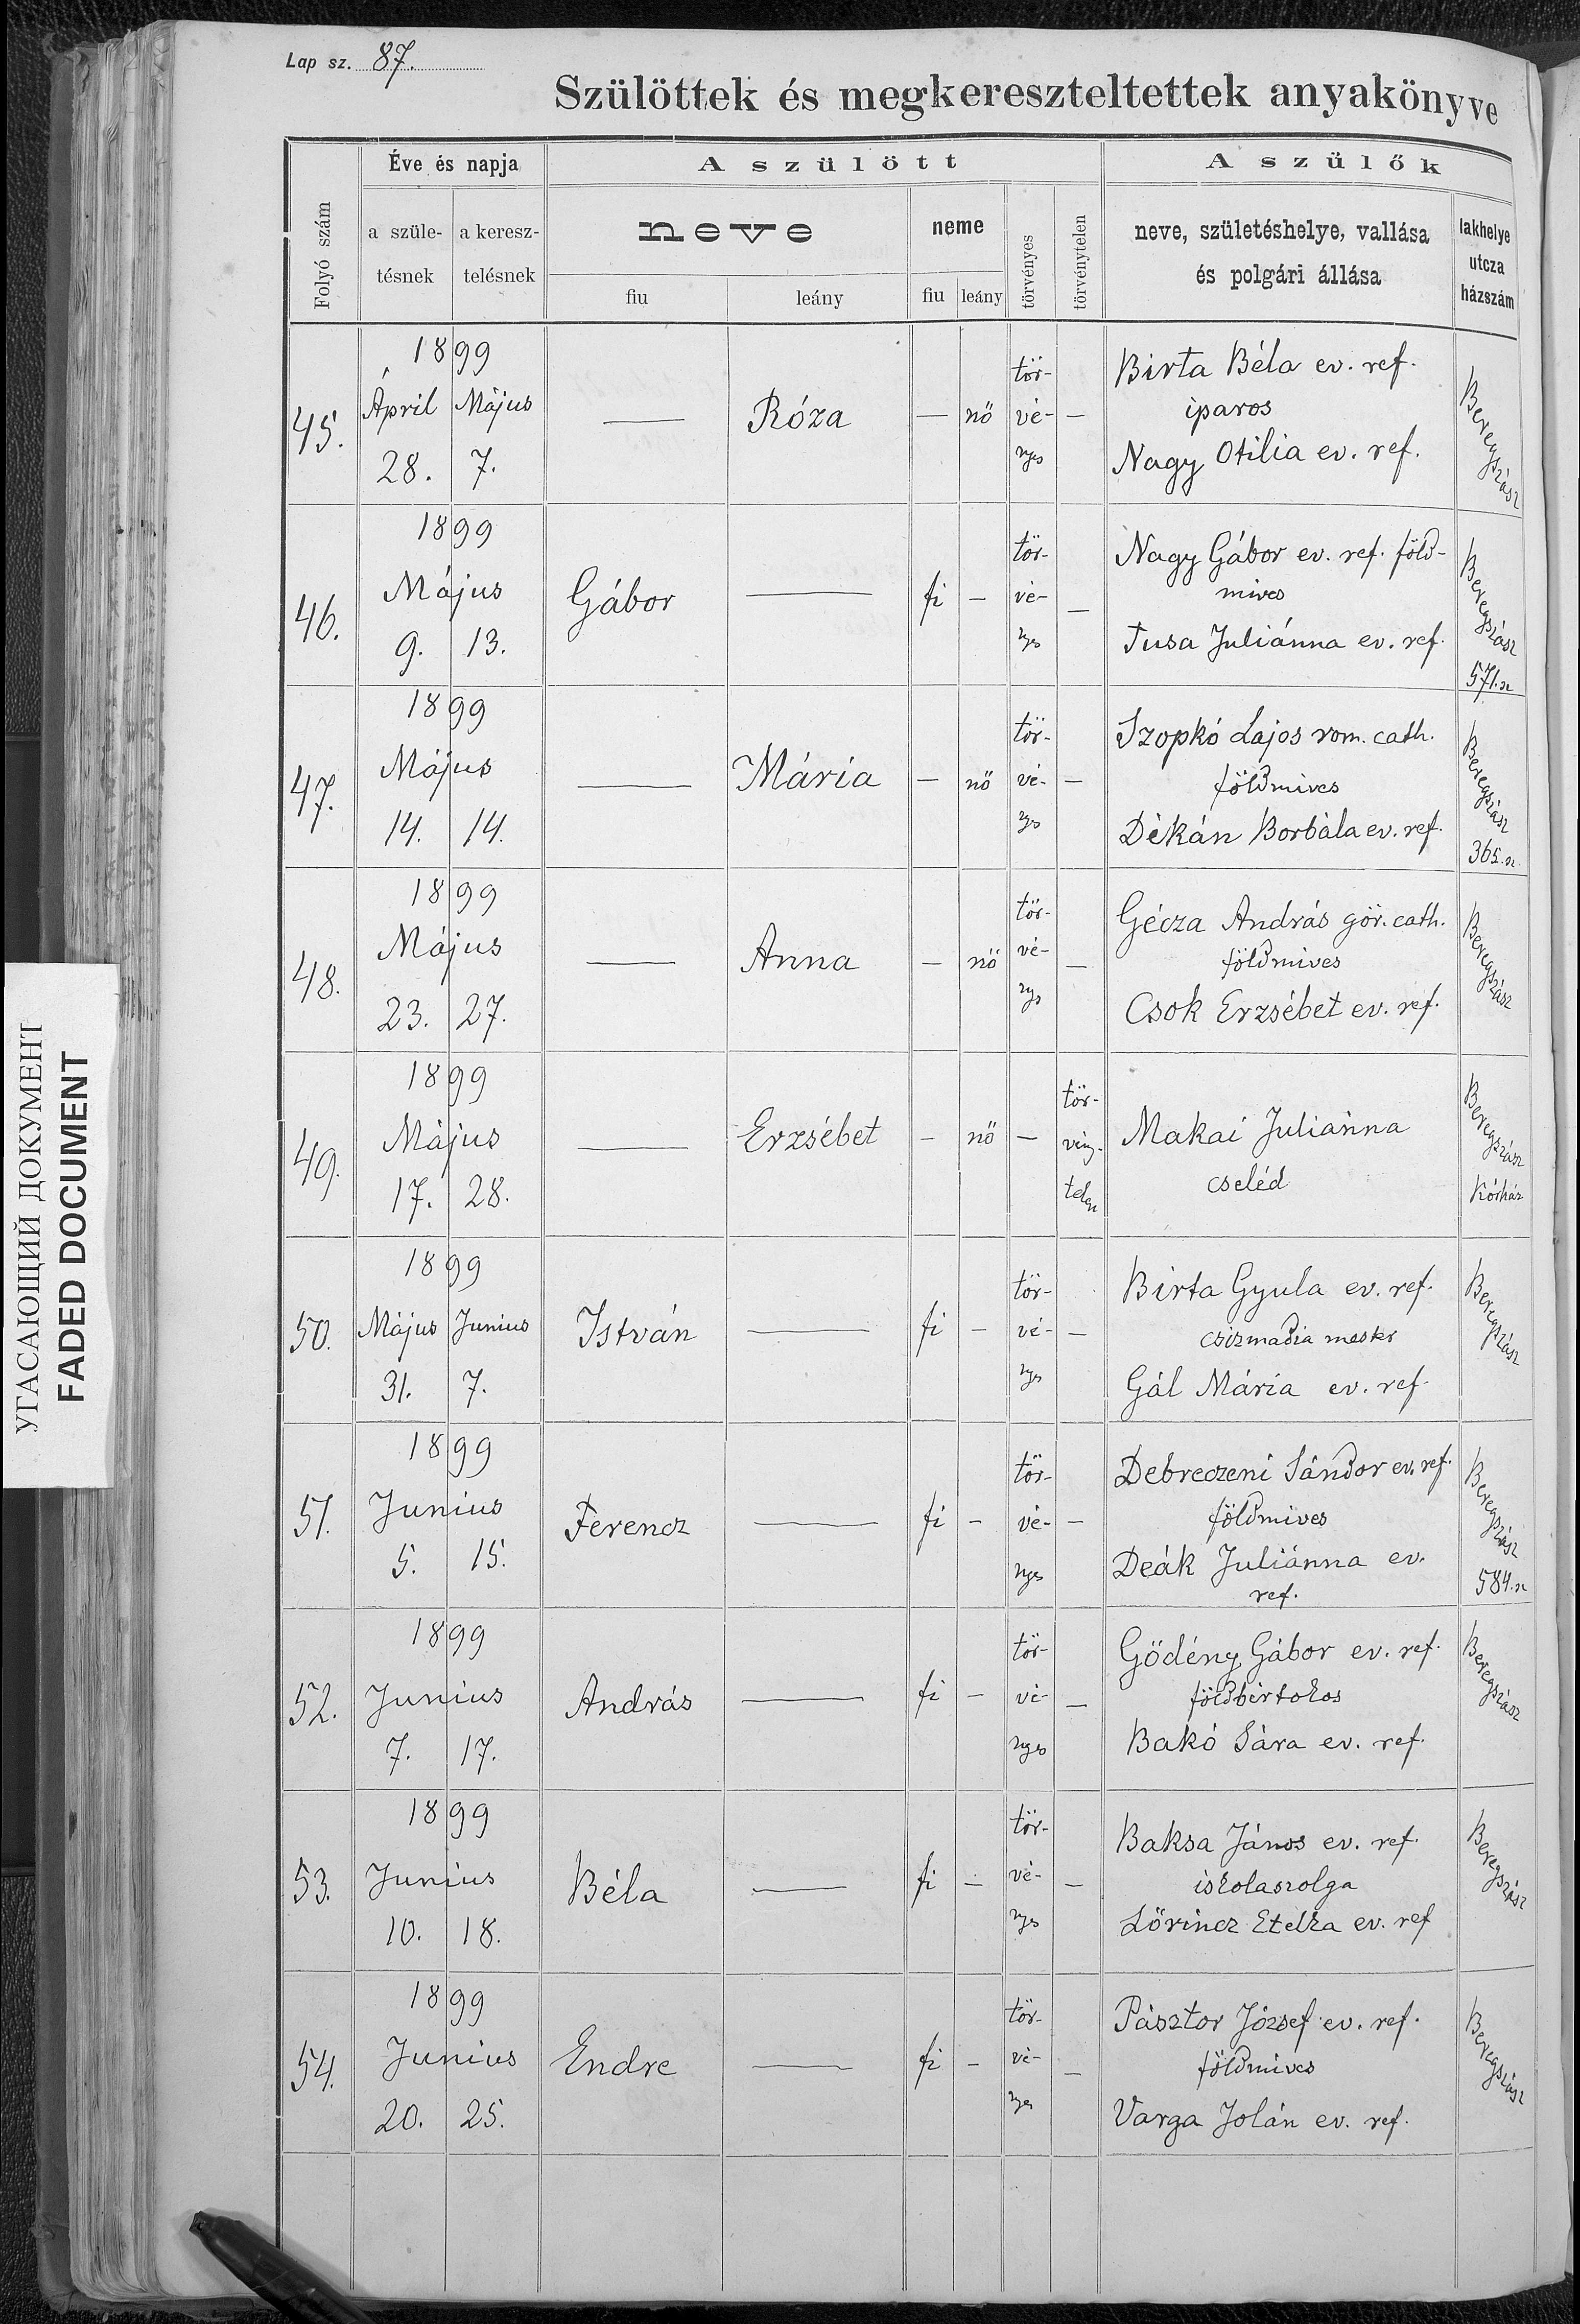 Lap sz. 87.
Szülöttek és megkereszteltettek anyakönyve
Folyó szám
Éve és napja
a szüle-
tésnek
a keresz-
telésnek
A szülött
neve
fiu
leány
neme
fiu
leány
törvényes
törvénytelen
A szülők
neve, születéshelye, vallása
és polgári állása
lakhelye
utcza
házszám
45.
1899
Ápril Május
28. 7.
—
Róza
— nő
tör-
vé-
nyes
—
Birta Béla ev. ref.
iparos
Nagy Otilia ev. ref.
Beregszász
46.
1899
Május
9. 13.
Gábor
—
fi —
tör-
vé-
nyes
—
Nagy Gábor ev. ref. föld-
mives
Tusa Juliánna ev. ref.
Beregszász
571.sz
47.
1899
Május
14. 14.
—
Mária
— nő
tör-
vé-
nyes
—
Szopkó Lajos rom. cath.
földmives
Dékán Borbála ev. ref.
Beregszász
365.sz.
48.
1899
Május
23. 27.
—
Anna
— nő
tör-
vé-
nys
—
Gécza András gör. cath.
földmives
Csok Erzsébet ev. ref.
Beregszász
49.
1899
Május
17. 28.
—
Erzsébet
— nő
—
tör-
vény-
telen
Makai Juliánna
cseléd
Beregszász
Kórház
50.
1899
Május Junius
31. 7.
István
—
fi —
tör-
vé-
nyes
—
Birta Gyula ev. ref.
csizmadia mester
Gál Mária ev. ref.
Beregszász
51.
1899
Junius
5. 15.
Ferencz
—
fi —
tör-
vé-
nyes
—
Debreczeni Sándor ev. ref.
földmives
Deák Juliánna ev.
ref.
Beregszász
584.sz
52.
1899
Junius
7. 17.
András
—
fi —
tör-
vé-
nyes
—
Gödény Gábor ev. ref.
földbirtokos
Bakó Sára ev. ref.
Beregszász
53.
1899
Junius
10. 18.
Béla
—
fi —
tör-
vé-
nyes
—
Baksa János ev. ref.
iskolaszolga
Lőrincz Etelka ev. ref
Beregszász
54.
1899
Junius
20. 25.
Endre
—
fi —
tör-
vé-
nyes
—
Pásztor József ev. ref.
földmives
Varga Jolán ev. ref.
Beregszász
УГАСАЮЩИЙ ДОКУМЕНТ
FADED DOCUMENT